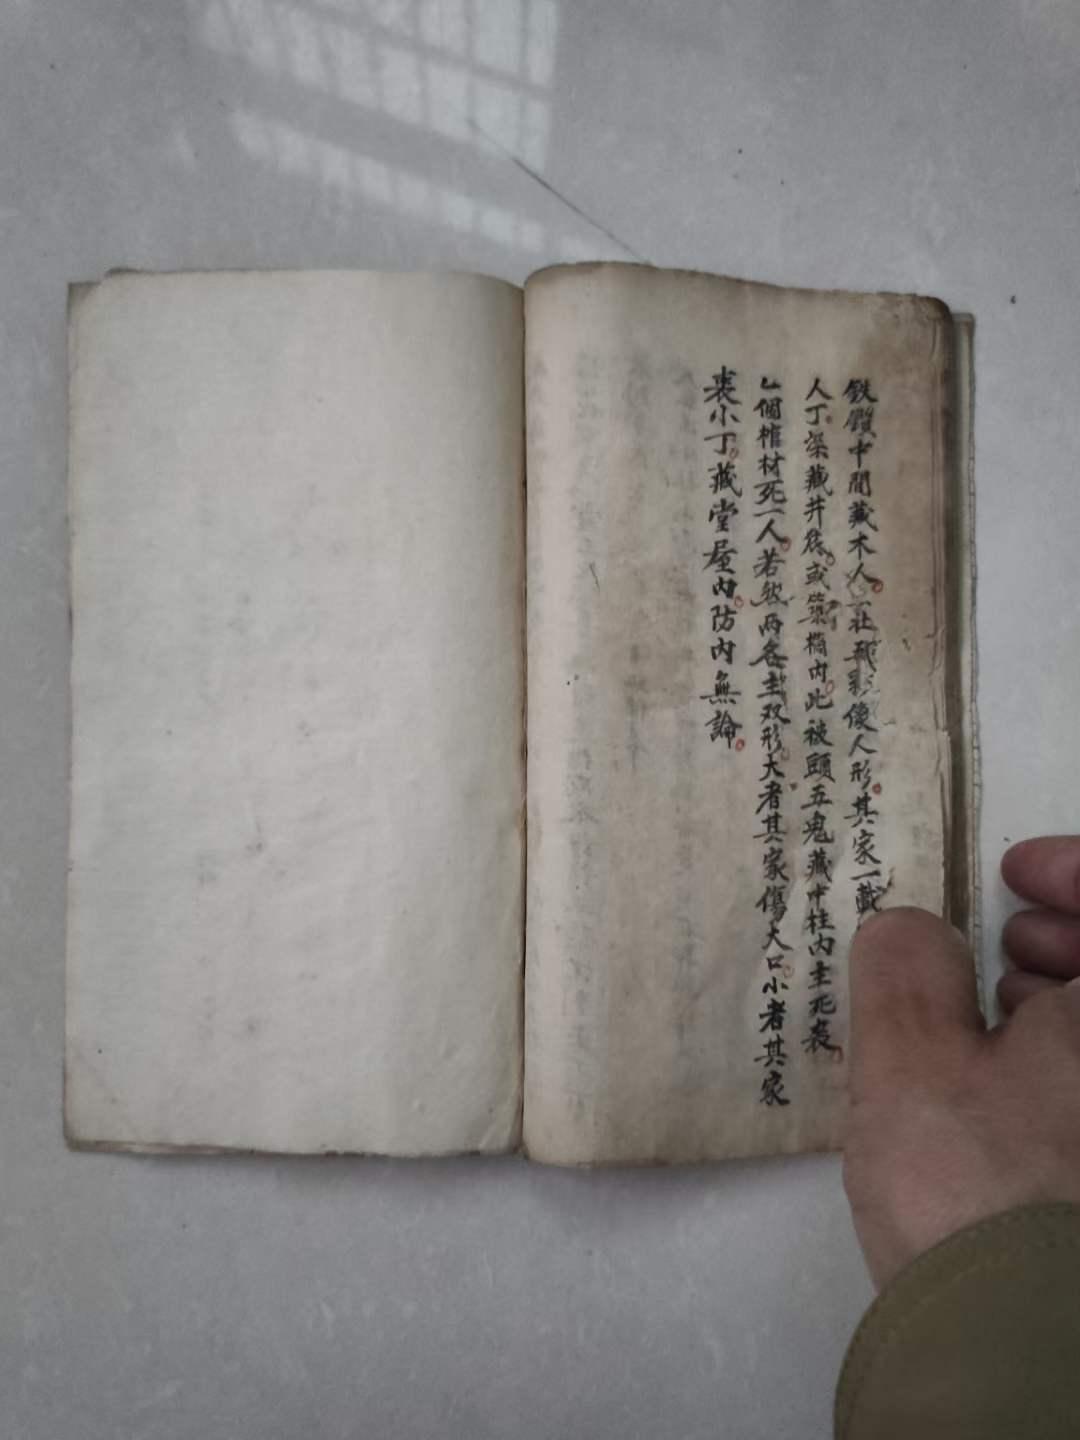 鉄鎖中間藏木人上書像人形其家一載
人丁梁藏井底或築橋內此被頭五鬼藏中柱內主死喪
個棺材死一人若然兩各主双形大者其家傷大口小者其家
喪小丁藏堂屋內防內無論